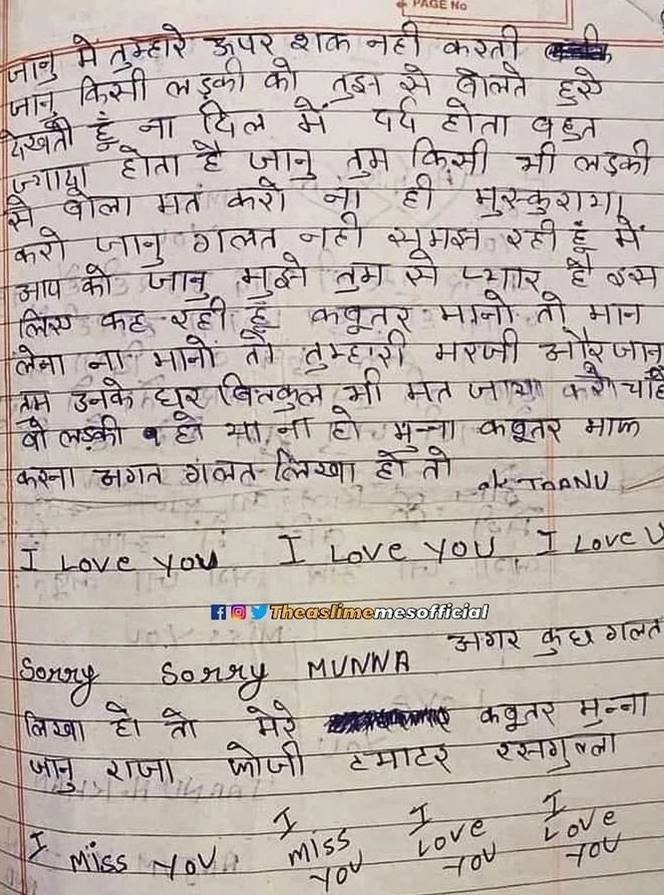 PAGE No
जानु मे तुम्हारे ऊपर शक नही करती
जानु किसी लड़की को तुझ से बोलते हुऐ
देखती हूँ ना दिल में दर्द होता बहुत
ज्यादा होता है जानु तुम किसी भी लड़की
से बोला मत करो ना ही मुस्कुराया
करो जानु गलत नही समझ रही हूँ में
आप को जानु मुझे तुम से प्यार है इस
लिए कह रही हूँ कबूतर मानो तो मान
लेना ना मानो तो तुम्हारी मरजी और जान
तुम उनके घर बिलकुल भी मत जाया करो चाहे
वो लड़की हो या ना हो मुन्ना कबूतर माफ
करना अगत गलत लिखा हो तो ok JAANU
I Love you I Love you I Love U
Theaslimememesofficial
Sorry Sorry MUNNA अगर कुछ गलत
लिखा हो तो मेरे कबूतर मुन्ना
जानु राजा टमाटर रसगुल्ला
I Miss You I Miss You I Love You I Love You